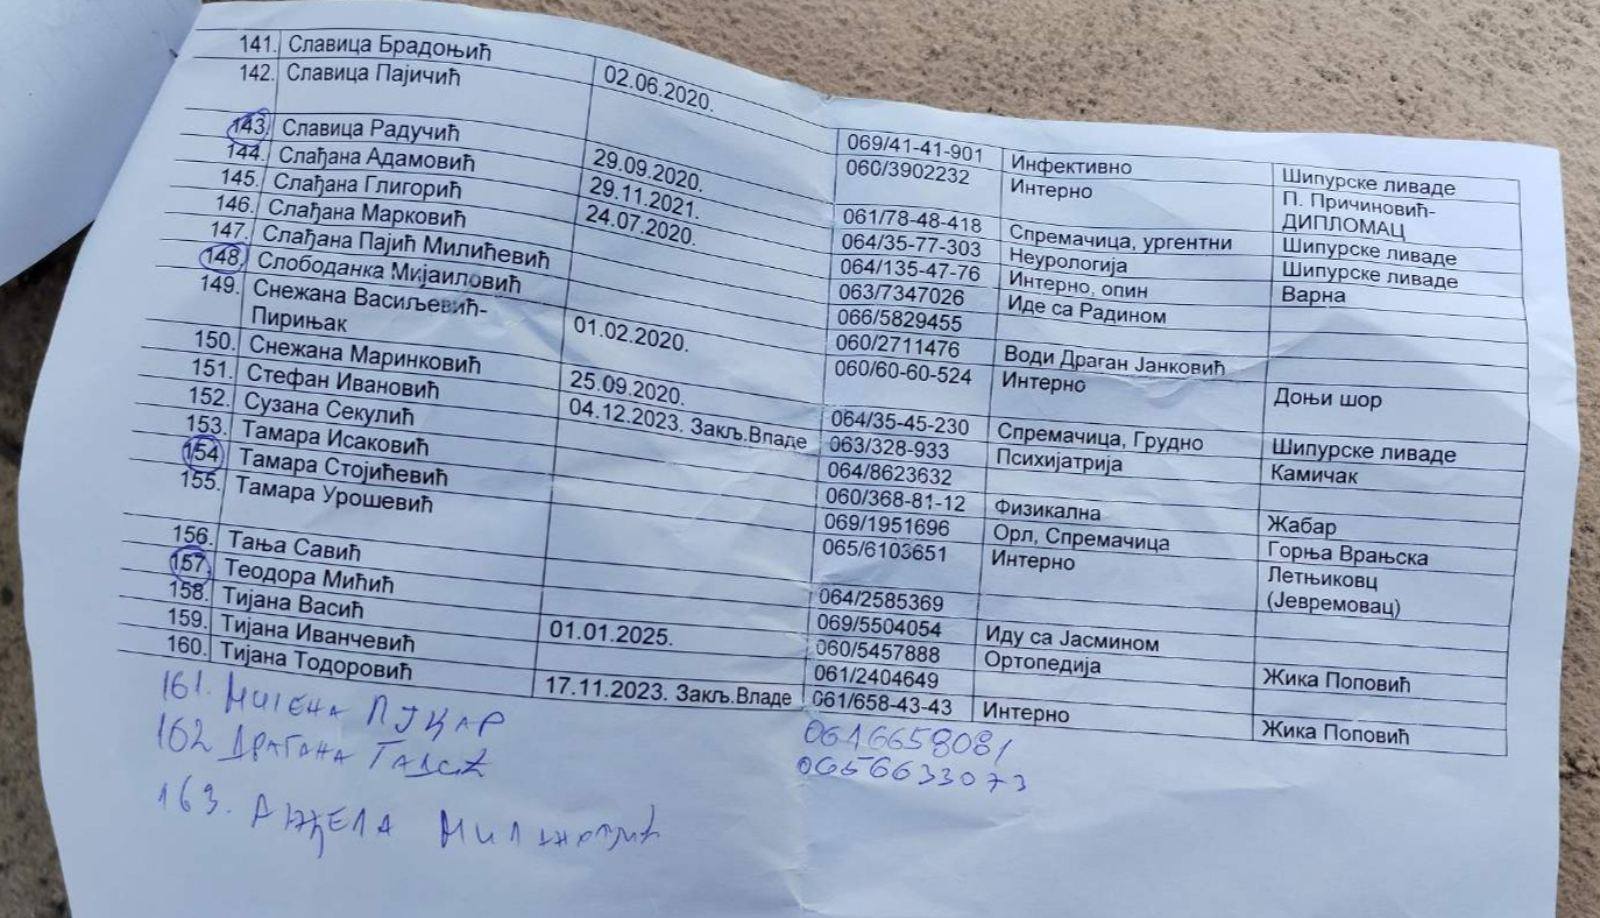 141. Славица Брадоњић 02.06.2020. 069/41-41-901 Инфективно Шипурске ливаде
142. Славица Пајичић 060/3902232 Интерно П. Причиновић-
ДИПЛОМАЦ
143. Славица Радучић 29.09.2020. 061/78-48-418 Спремачица, ургентни Шипурске ливаде
144. Слађана Адамовић 29.11.2021. 064/35-77-303 Неурологија Шипурске ливаде
145. Слађана Глигорић 24.07.2020. 064/135-47-76 Интерно, опин Варна
146. Слађана Марковић 063/7347026 Иде са Радином
147. Слађана Пајић Милићевић 066/5829455
148. Слободанка Мијаиловић 060/2711476 Води Драган Јанковић
149. Снежана Васиљевић- 01.02.2020. 060/60-60-524 Интерно Доњи шор
Пирињак
150. Снежана Маринковић 25.09.2020. 064/35-45-230 Спремачица, Грудно Шипурске ливаде
151. Стефан Ивановић 04.12.2023. Закљ.Владе 063/328-933 Психијатрија Камичак
152. Сузана Секулић 064/8623632
153. Тамара Исаковић 060/368-81-12 Физикална Жабар
154. Тамара Стојићевић 069/1951696 Орл, Спремачица Горња Врањска
155. Тамара Урошевић 065/6103651 Интерно Летњиковц
(Јевремовац)
156. Тања Савић 064/2585369
157. Теодора Мићић 069/5504054 Иду са Јасмином
158. Тијана Васић 01.01.2025. 060/5457888 Ортопедија Жика Поповић
159. Тијана Иванчевић 061/2404649
160. Тијана Тодоровић 17.11.2023. Закљ.Владе 061/658-43-43 Интерно Жика Поповић
161. Милена 0616658081
162 Драгана 0656633073
163. Анђела